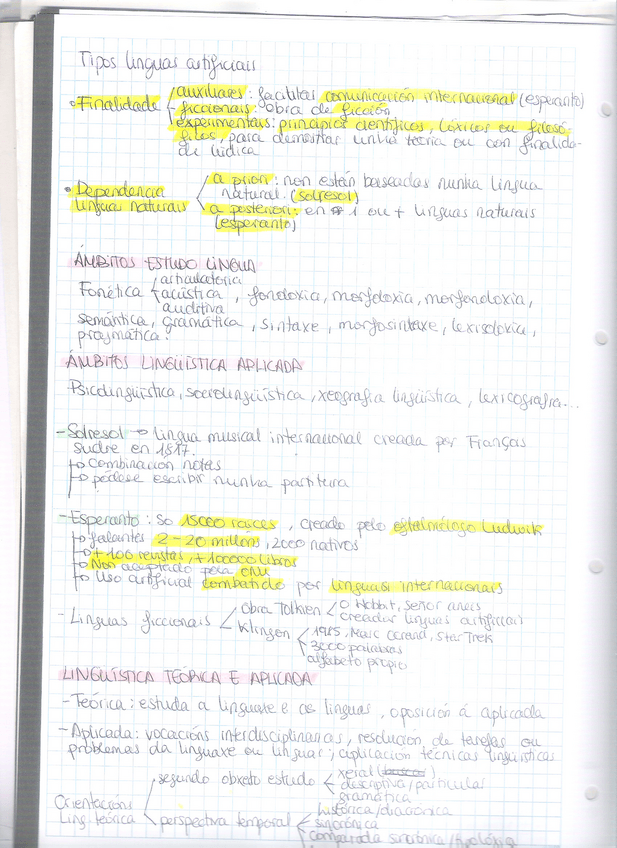 Tipos linguas artificiais
• Finalidade
auxiliares: facilitar comunicación internacional (esperanto)
ficcionais: obra de ficción
experimentais: principios científicos, léxicos ou filosó-
ficos, para demostrar unha teoría ou con finalida-
de lúdica
• Dependencia
lingua naturais
a priori: non están baseadas nunha lingua
natural. (solresol)
a posteriori: en 1 ou + linguas naturais
(esperanto)
ÁMBITOS ESTUDO LINGUA
Fonética
articulatoria
acústica, fonoloxía, morfoloxía, morfonoloxía,
auditiva
semántica, gramática, sintaxe, morfosintaxe, lexicoloxía,
pragmática.
ÁMBITOS LINGÜÍSTICA APLICADA
Psicolingüística, sociolingüística, xeografía lingüística, lexicografía...
- Solresol → lingua musical internacional creada por François
Sudre en 1817.
↳ combinación notas
↳ pódese escribir nunha partitura
- Esperanto: só 15000 raíces, creado pelo oftalmólogo Ludwik
↳ falantes 2-20 millóns, 2000 nativos
↳ + 100 revistas, + 100000 libros
↳ Non aceptado pela ONU
↳ Uso artificial combatido por linguas internacionais
- Linguas ficcionais
obra Tolkien
O Hobbit, Señor aneis
creador linguas artificiais
Klingon
1985, Marc Okrand, Star Trek
3000 palabras
alfabeto propio
LINGÜÍSTICA TEÓRICA E APLICADA
- Teórica: estuda a linguaxe e as linguas, oposición á aplicada
- Aplicada: vocacións interdisciplinarias, resolución de tarefas ou
problemas da linguaxe ou linguas; aplicación técnicas lingüísticas
Orientacións
Ling. teórica
segundo obxeto estudo
xeral
descriptiva/particular
gramática
perspectiva temporal
histórica/diacrónica
sincrónica
comparada sincrónica/tipolóxica